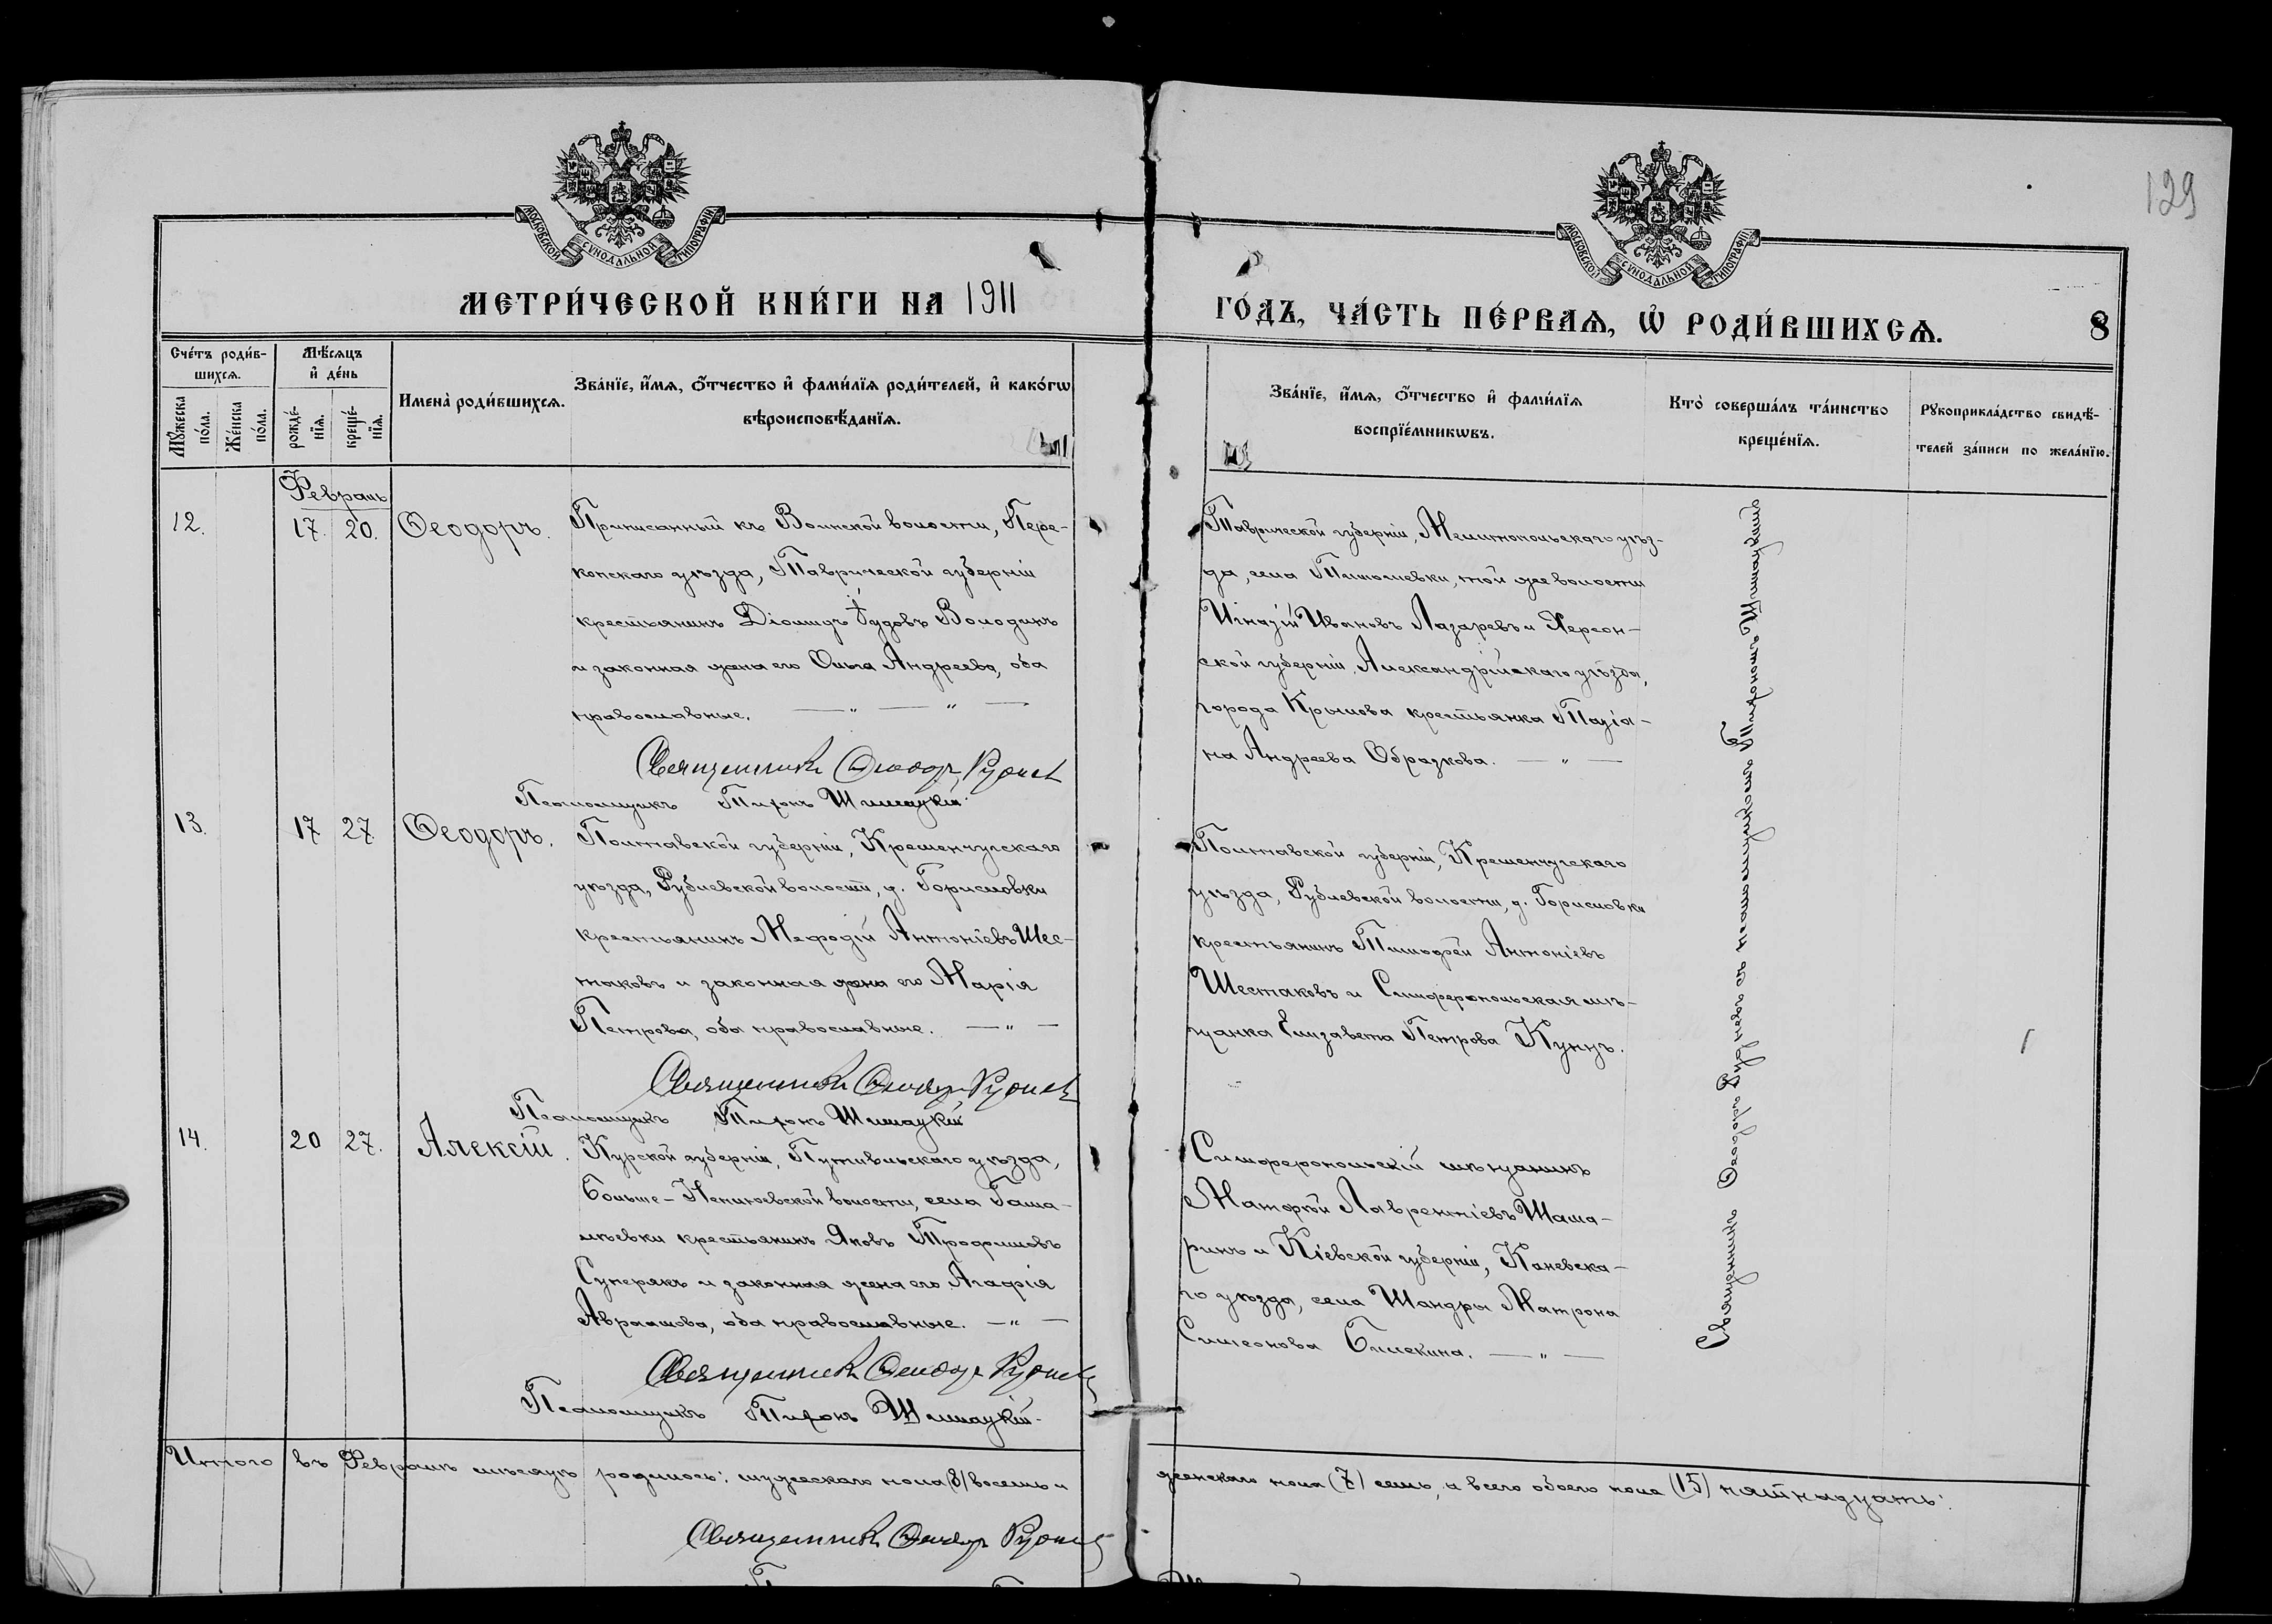 129
МОСКОВСКОЙ СУНОДАЛЬНОЙ ТИПОГРАФІИ
МОСКОВСКОЙ СУНОДАЛЬНОЙ ТИПОГРАФІИ
МЕТРИ́ЧЕСКОЙ КНИ́ГИ НА 1911
ГО́ДЪ, ЧА́СТЬ ПЕ́РВАѦ, Ѡ РОДИ́ВШИХСѦ.
8
Сче́тъ роди́в-
шихсѧ.
Мꙋ́жеска по́ла.
Же́нска по́ла.
Мѣ́сѧцъ
и де́нь
рожде́-нїѧ.
креще́-нїѧ.
Имена̀ роди́вшихсѧ.
Зва́нїе, и́мѧ, ѻ́тчество и фами́лїѧ роди́телей, и како́гѡ
вѣроисповѣ́данїѧ.
Зва́нїе, и́мѧ, ѻ́тчество и фами́лїѧ
воспрїе́мникѡвъ.
Кто̀ соверша́лъ та́инство
креще́нїѧ.
Рꙋкоприкла́дство свидѣ́-
телей за́писи по жела́нїю.
Февраль
12. 17. 20. Ѳеодоръ.
Приписанный къ Воинской волости, Пере-
копскаго уѣзда, Таврической губерніи
крестьянинъ Володинъ
и законная жена его Ольга Андреева, оба
православные. — " — " —
Священникъ Ѳеодоръ
Псаломщикъ Тихонъ Шимацкій.
Таврической губерніи, Мелитопольскаго уѣз-
да, села той же волости
Игнатій Ивановъ Лазаревъ и Херсон-
ской губерніи, Александрійскаго уѣзда,
города Крылова крестьянка Татіа-
на Андреева Образкова. — " —
13. 17 27 Ѳеодоръ.
Полтавской губерніи, Кременчугскаго
уѣзда, Рублевской волости, д. Горисловки
крестьянинъ Меѳодій Антоніевъ Шес-
таковъ и законная жена его Марія
Петрова, оба православные. — " —
Священникъ Ѳеодоръ
Псаломщикъ Тихонъ Шимацкій
Полтавской губерніи, Кременчугскаго
уѣзда, Рублевской волости, д. Горисловки
крестьянинъ Тимофей Антоніевъ
Шестаковъ и Симферопольская мѣ-
щанка Елизавета Петрова Кунцъ.
14. 20 27. Алексій.
Курской губерніи, Путивльскаго уѣзда,
Больше-Неплюевской волости, села
крестьянинъ Яковъ Трофимовъ
Суперякъ и законная жена его Агафія
Авраамова, оба православные. — " —
Священникъ Ѳеодоръ
Псаломщикъ Тихонъ Шимацкій.
Симферопольскій мѣщанинъ
Матфей Лаврентіевъ Шата-
ринъ и Кіевской губерніи, Каневска-
го уѣзда, села Шандры Матрона
Симеонова — " —
Священникъ Ѳеодоръ съ псаломщикомъ Тихономъ Шимацкимъ
Итого въ Февралѣ мѣсяцѣ родилось: мужескаго пола (8) восемь и
женскаго пола (7) семь, а всего обоего пола (15) пятнадцать.
Священникъ Ѳеодоръ